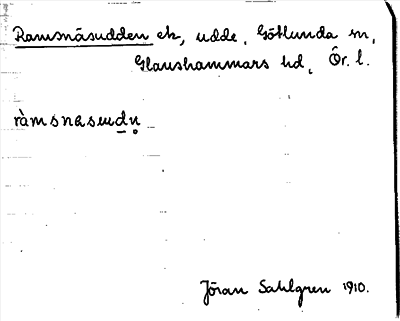 Ramsnäsudden ek, udde, Götlunda sn,
Glanshammars hd, Ör. l.
ràmsnasuudn̥
Jöran Sahlgren 1910.